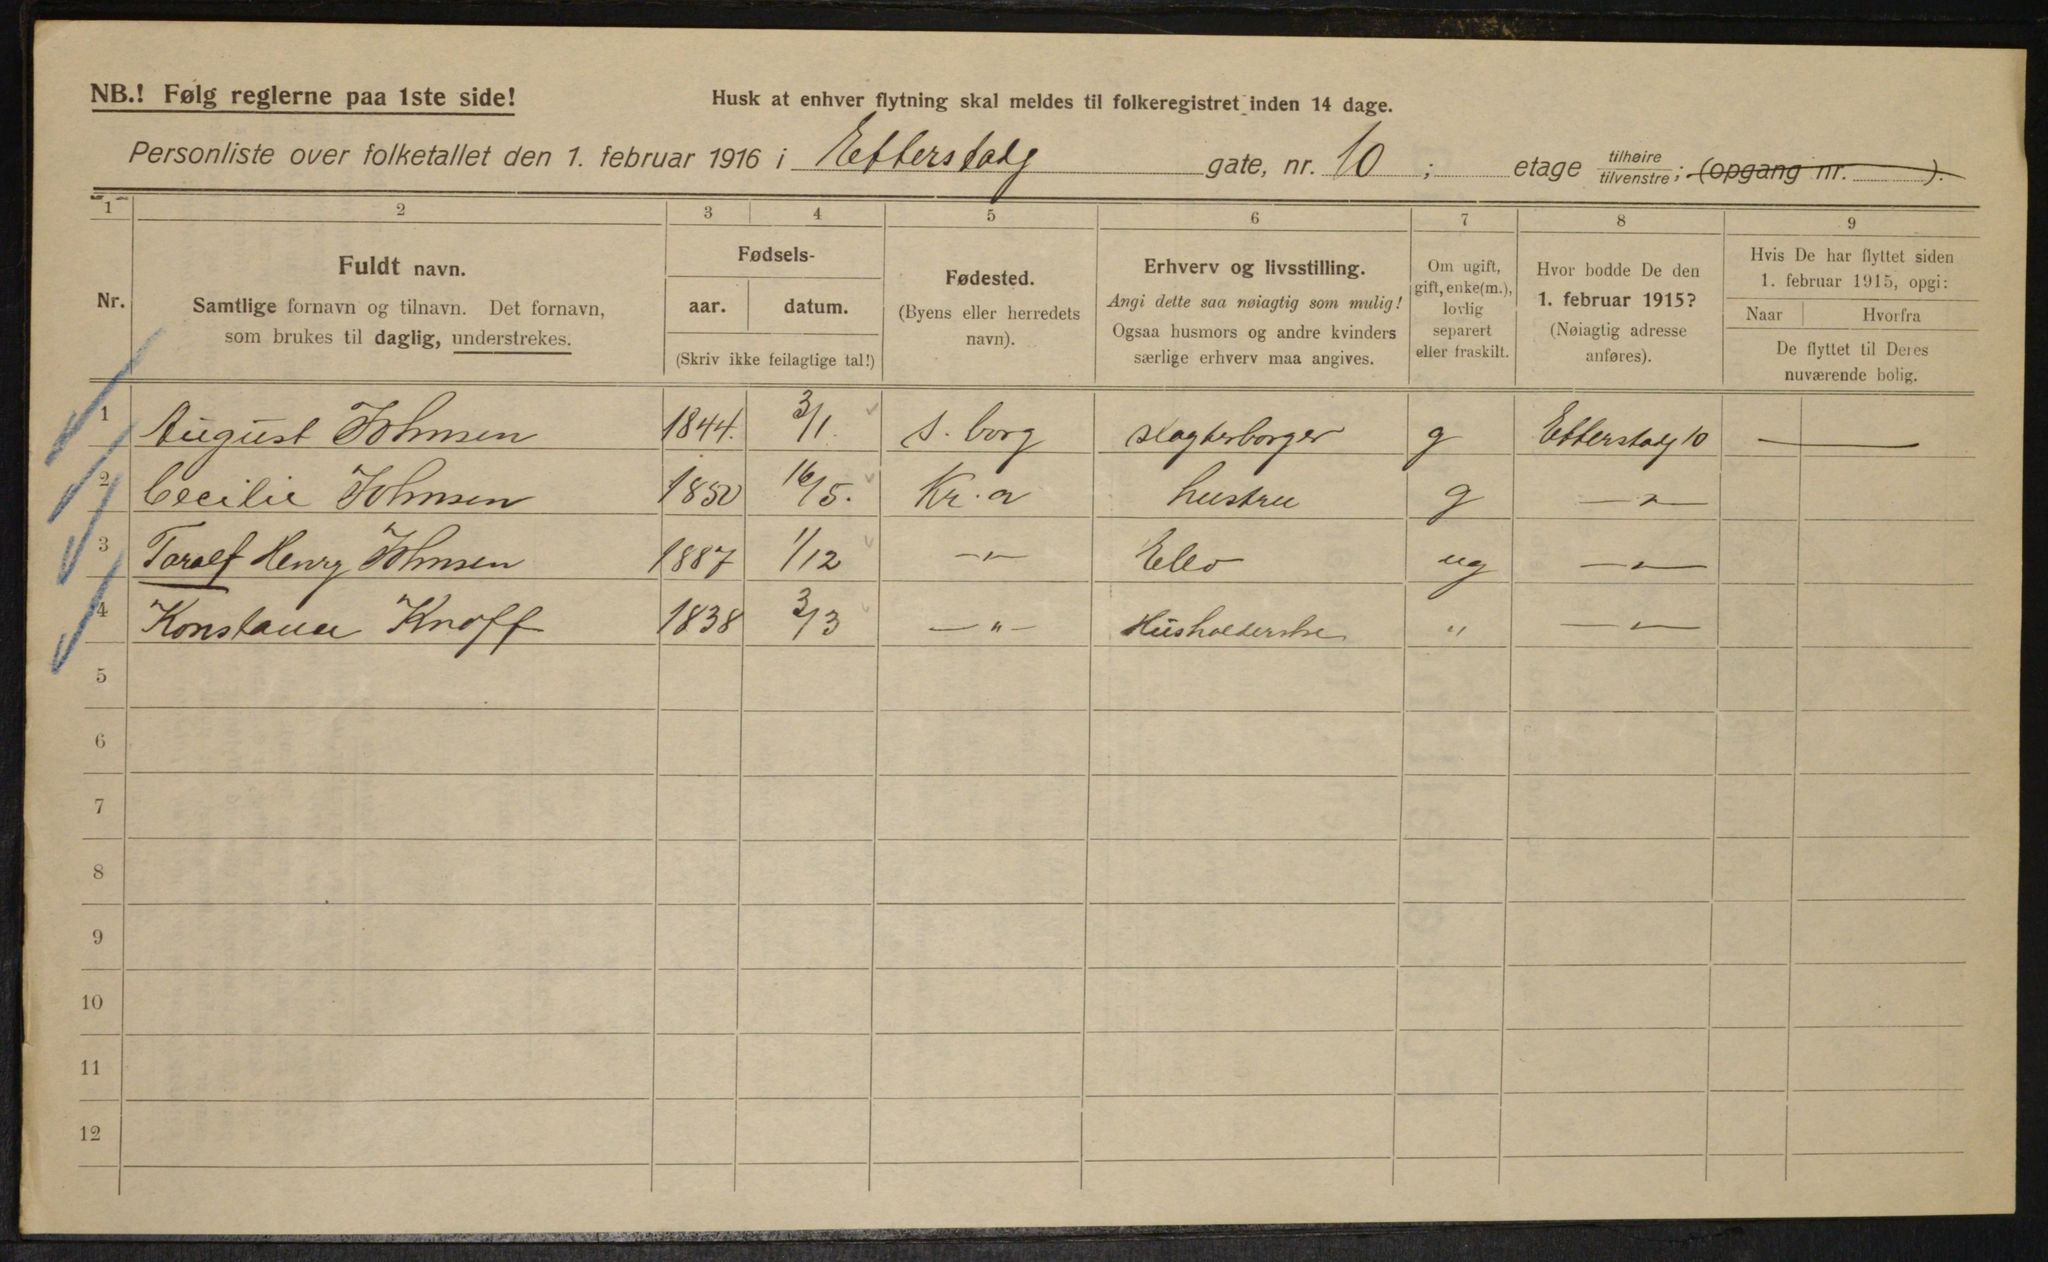 NB.! Følg reglerne paa 1ste side!
Husk at enhver flytning skal meldes til folkeregistret inden 14 dage.
Personliste over folketallet den 1. februar 1916 i Etterstadg gate, nr. 10 ; etage tilhøire tilvenstre ; (opgang nr. ).
1 2 3 4 5 6 7 8 9
Nr.
Fuldt navn.
Samtlige fornavn og tilnavn. Det fornavn,
som brukes til daglig, understrekes.
Fødsels-
aar. datum.
(Skriv ikke feilagtige tal!)
Fødested.
(Byens eller herredets
navn).
Erhverv og livsstilling.
Angi dette saa nøiagtig som mulig!
Ogsaa husmors og andre kvinders
særlige erhverv maa angives.
Om ugift,
gift, enke(m.),
lovlig
separert
eller fraskilt.
Hvor bodde De den
1. februar 1915?
(Nøiagtig adresse
anføres).
Hvis De har flyttet siden
1. februar 1915, opgi:
Naar Hvorfra
De flyttet til Deres
nuværende bolig.
1 August Johnsen 1844. 3/1. S. borg slagterborger g Etterstadg 10 —
2 Cecilie Johnsen 1850 16/5. Kr.a hustru g —"—
3 Toralf Henry Johnsen 1887 1/12 —"— Elev ug —"—
4 Konstance Knoff 1838 3/3 —"— Husholderske " —"—
5
6
7
8
9
10
11
12